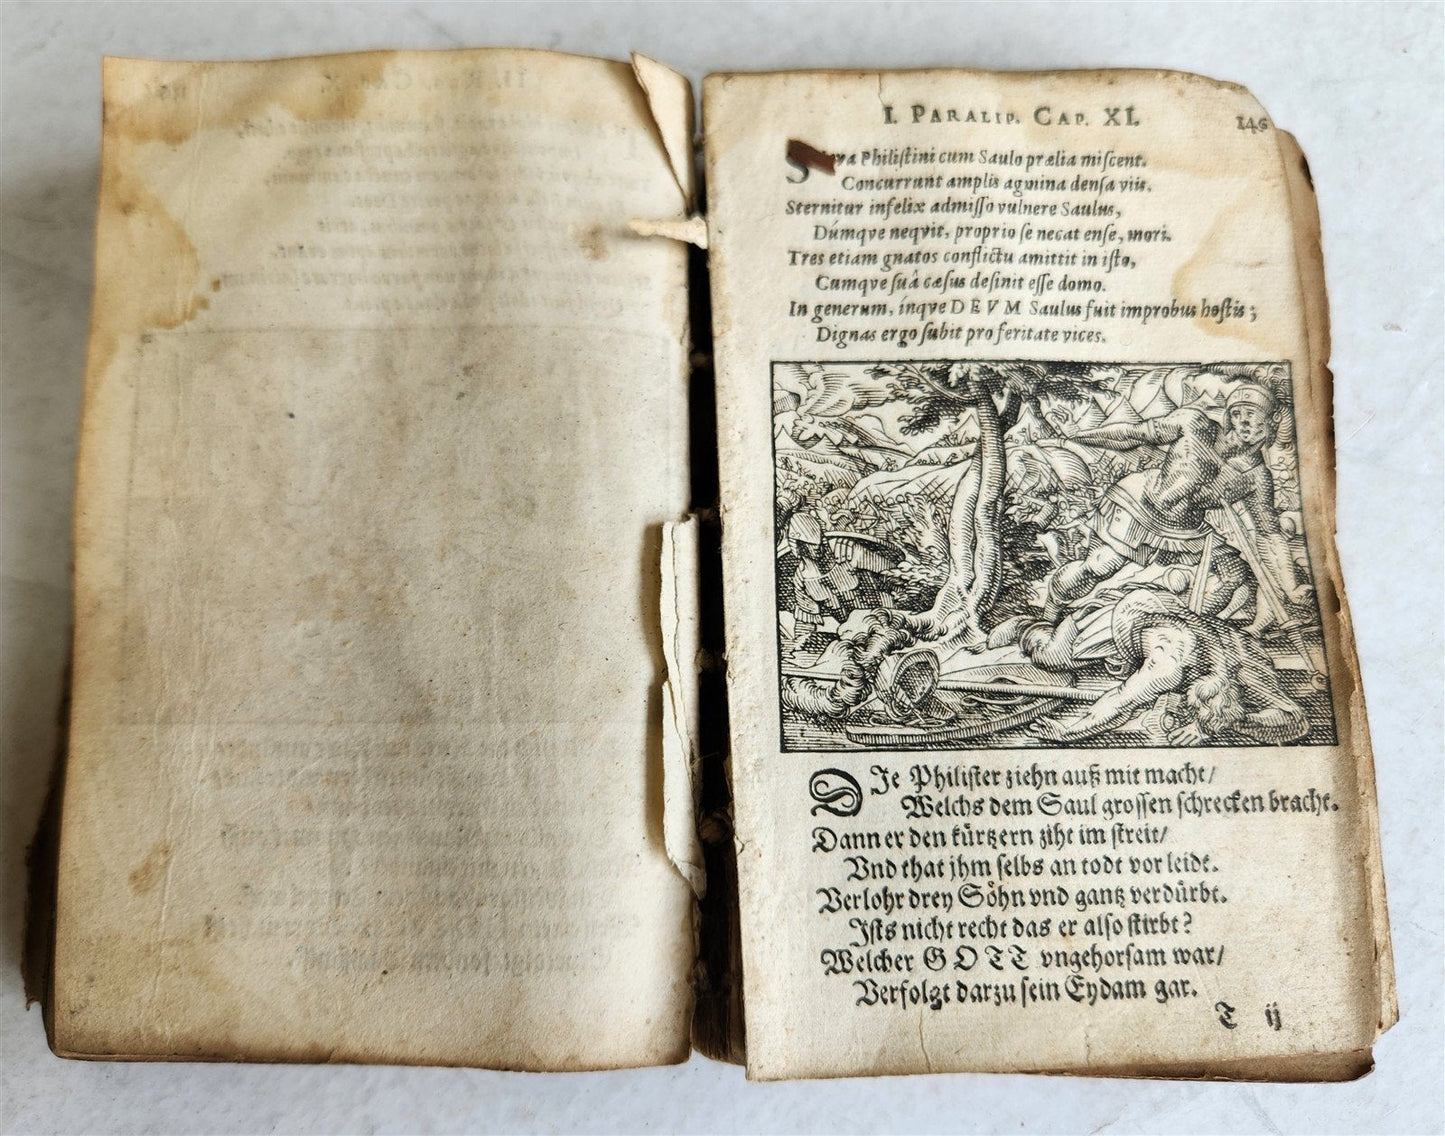 I. PARALIP. CAP. XI. 146
Philiſtini cum Saulo prælia miſcent.
Concurrunt amplis agmina denſa viis.
Sternitur infelix admiſſo vulnere Saulus,
Dúmqve neqvit, proprio ſe necat enſe, mori.
Tres etiam gnatos conflictu amittit in iſto,
Cumqve ſuâ cæſus deſinit eſſe domo.
In generum, ínqve DEVM Saulus fuit improbus hoſtis;
Dignas ergo ſubit pro feritate vices.
DIe Philiſter ziehn auß mit macht/
Welchs dem Saul groſſen ſchrecken bracht.
Dann er den kürtzern ziht im ſtreit/
Vnd that jhm ſelbs an todt vor leidt.
Verlohr drey Söhn vnd gantz verdürbt.
Iſts nicht recht das er alſo ſtirbt?
Welcher GOTT vngehorſam war/
Verfolgt darzu ſein Eydam gar.
T ij